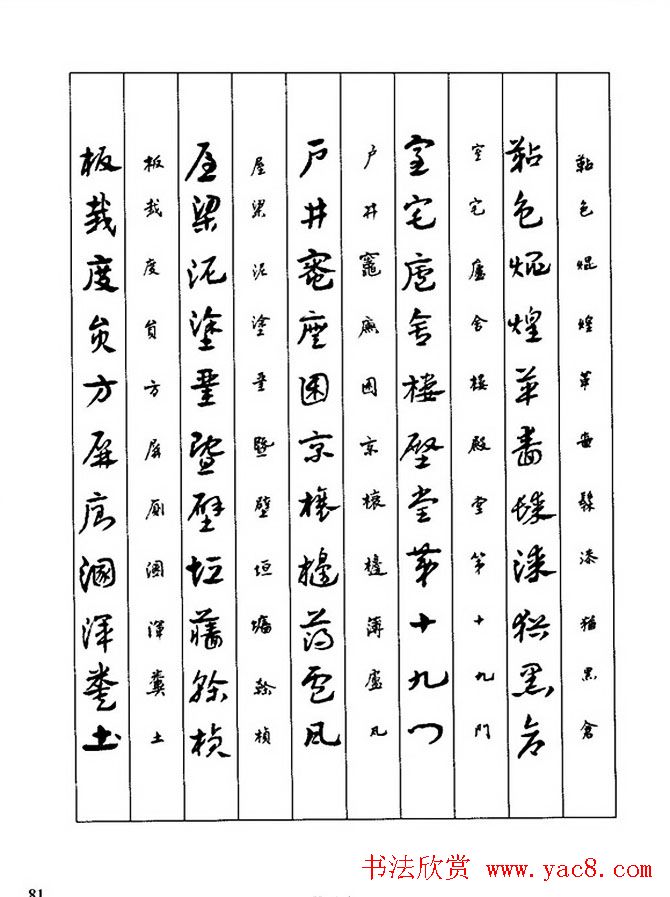 色焜煌革髹漆黑倉
色焜煌革漆黑倉
室宅廬舍樓殿堂第十九門
室宅廬舍樓殿堂第十九門
户井竈廡囷京榱薄盧瓦
户井竈廡囷京榱薄盧瓦
屋梁泥塗堊塈壁垣墻榦楨
屋梁泥塗堊塈壁垣榦楨
板栽度員方屏廁溷渾糞土
板栽度員方屏廁溷渾糞土
81
书法欣赏 www.yac8.com